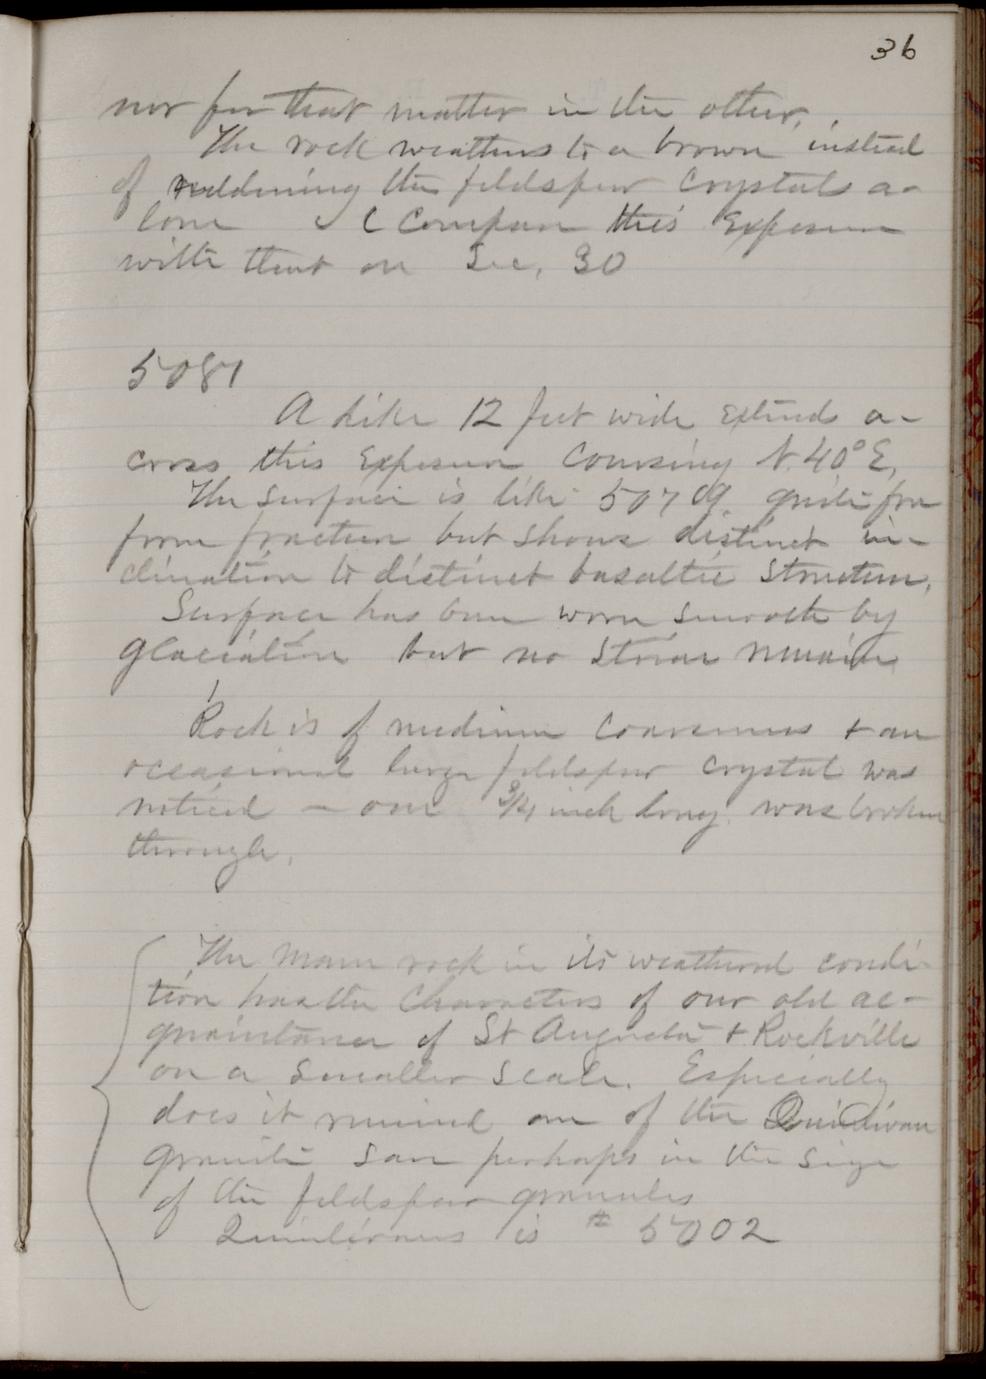 36
nor for that matter in the other.
The rock weathers to a brown instead
of reddening the feldspar crystals a-
lone (Compare this Exposure
with that on Sec. 30
5081
A dike 12 feet wide extends a-
cross this Exposure Coursing N. 40° E,
The surface is like 5079. quite free
from fracture but shows distinct in-
clination to distinct basaltic structure.
Surface has been worn smooth by
glaciation but no striae remain
Rock is of medium coarseness + an
occasional large feldspar crystal was
noticed – one 3/4 inch long was broken
through.
The main rock in its weathered condi-
tion has the Characters of our old ac-
quaintance of St Augusta + Rockville
on a smaller scale. Especially
does it remind one of the Quinlivan
granite save perhaps in the size
of the feldspar granules
Quinlivans is # 5002